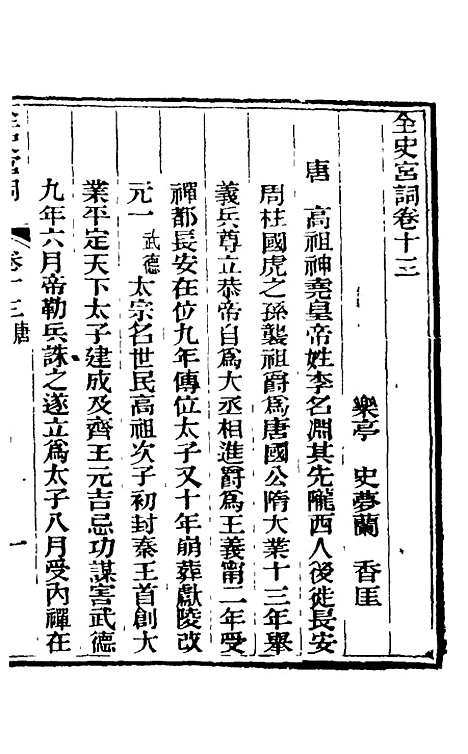 全史宮詞卷十三
樂亭 史夢蘭 香厓
唐 高祖神堯皇帝姓李名淵其先隴西人後徙長安
周柱國虎之孫襲祖爵爲唐國公隋大業十三年舉
義兵尊立恭帝自爲大丞相進爵爲王義甯二年受
禪都長安在位九年傳位太子又十年崩葬獻陵改
元一 武德 太宗名世民高祖次子初封秦王首創大
業平定天下太子建成及齊王元吉忌功謀害武德
九年六月帝勒兵誅之遂立爲太子八月受內禪在
全史宮詞 卷十三 唐 一